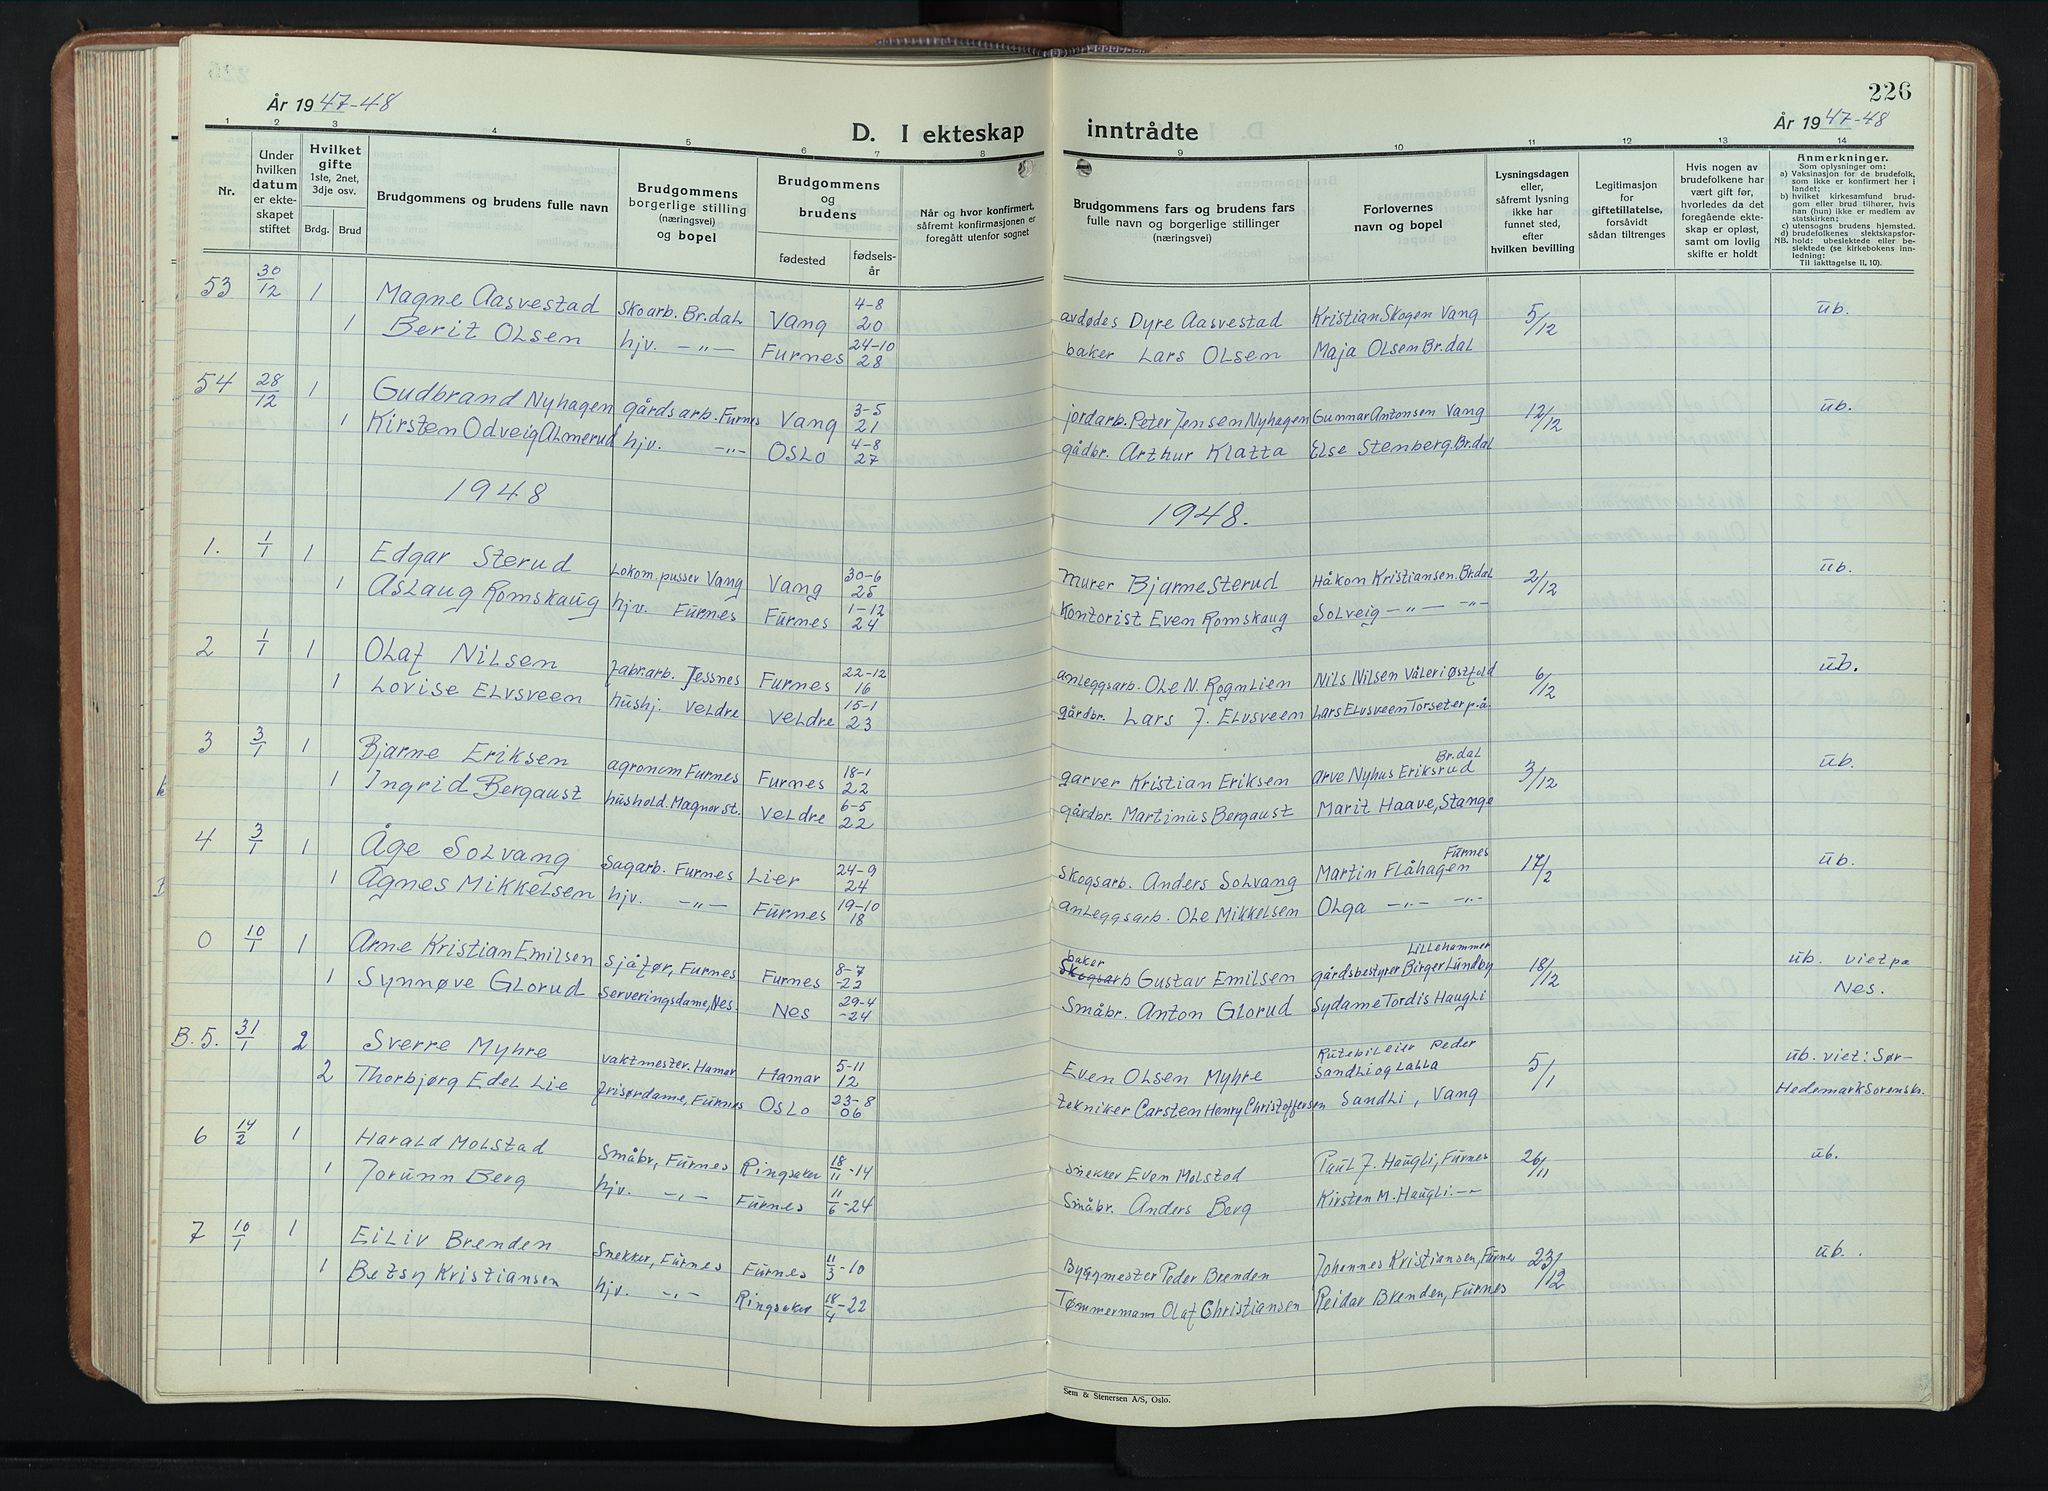 226
År 19 47-48
D. I ekteskap inntrådte
År 19 47-48
1 2 3 4 5 6 7 8 9 10 11 12 13 14
Nr.
Under hvilken datum er ekteskapet stiftet
Hvilket gifte 1ste, 2net, 3dje osv.
Brdg. Brud
Brudgommens og brudens fulle navn
Brudgommens borgerlige stilling (næringsvei) og bopel
Brudgommens og brudens
fødested
fødselsår
Når og hvor konfirmert, såfremt konfirmasjonen er foregått utenfor sognet
Brudgommens fars og brudens fars fulle navn og borgerlige stillinger (næringsvei)
Forlovernes navn og bopel
Lysningsdagen eller, såfremt lysning ikke har funnet sted, efter hvilken bevilling
Legitimasjon for giftetillatelse, forsåvidt sådan tiltrenges
Hvis nogen av brudefolkene har vært gift før, hvorledes da det foregående ekteskap er opløst, samt om lovlig skifte er holdt
Anmerkninger.
Som oplysninger om:
a) Vaksinasjon for de brudefolk, som ikke er konfirmert her i landet;
b) hvilket kirkesamfund brudgom eller brud tilhører, hvis han (hun) ikke er medlem av statskirken;
c) utensogns brudens hjemsted.
d) brudefolkenes slektskapsforhold: ubeslektede eller beslektede (se kirkebokens innledning:
NB.
Til iakttagelse II, 10).
53 30/12 1 Magne Aasvestad Skoarb. Br.dal Vang 4-8 20 avdødes Dyre Aasvestad Kristian Skogen Vang 5/12 üb.
1 Berit Olsen hjv. -"- Furnes 24-10 28 baker Lars Olsen Maja Olsen Br.dal
54 28/12 1 Gudbrand Nyhagen gårdsarb. Furnes Vang 3-5 21 jordarb. Peter Jensen Nyhagen Gunnar Antonsen Vang 12/12 üb.
1 Kirsten Odveig Almerud hjv. -"- Oslo 4-8 27 gådbr. Arthur Klatta Else Stenberg. Br.dal
1948 1948.
1. 1/1 1 Edgar Sterud Lokom.pusser Vang Vang 30-6 25 murer Bjarne Sterud Håkon Kristiansen. Br.dal 2/12 üb.
1 Aslaug Romskaug hjv. Furnes Furnes 1-12 24 Kontorist Even Romskaug Solveig -"- -"-
2 1/1 1 Olaf Nilsen fabr.arb. Jessnes Furnes 22-12 16 anleggsarb. Ole N. Rognlien Nils Nilsen Våler i Østfold 6/12 üb.
1 Lovise Elvsveen hushj. Veldre Veldre 15-1 23 gårdbr. Lars J. Elvsveen Lars Elvsveen Torseter p.å.
3 3/1 1 Bjarne Eriksen agronom Furnes Furnes 18-1 22 garver Kristian Eriksen Arve Nyhus Eriksrud Br.dal 3/12 üb.
1 Ingrid Bergaust hushold. Magnor st. Veldre 6-5 22 gårdbr. Martinus Bergaust Marit Haave, Stange
4 3/1 1 Åge Solvang Sagarb. Furnes Lier 24-9 24 Skogsarb. Anders Solvang Martin Flåhagen Furnes 17/2 üb.
1 Agnes Mikkelsen hjv. -"- Furnes 19-10 18 anleggsarb. Ole Mikkelsen Olga -"- -"-
0 10/1 1 Arne Kristian Emilsen Sjåfør, Furnes Furnes 8-7 -22 Skogsarb baker Gustav Emilsen gårdsbestyrer Birger Lundby Lillehammer 18/12 üb. viet på Nes.
1 Synnøve Glorud Serveringsdame, Nes. Nes 29-4 -24 Småbr. Anton Glorud Sydame Tordis Haugli
B. 5. 31/1 2 Sverre Myhre vaktmester. Hamar Hamar 5-11 12 Even Olsen Myhre Rutebileier Peder Sandli og Lalla 5/1 üb. viet: Sør-
2 Thorbjørg Edel Lie frisørdame, Furnes Oslo 23-8 06 tekniker Carsten Henry Christoffersen Sandli, Vang Hedemark Sorenskr.
6 14/2 1 Harald Molstad Småbr, Furnes Ringsaker 18/11-14 Snekker Even Molstad Paul J. Haugli, Furnes 26/11 üb.
1 Jorunn Berg hjv. -"- Furnes 11/6-24 Småbr. Anders Berg Kirsten M. Haugli. -"-
7 10/1 1 Eiliv Brenden Snekker, Furnes Furnes 11/3-10 Byggmester Peder Brenden Johannes Kristiansen, Furnes 23/12 üb.
1 Betsy Kristiansen hjv. -"- Ringsaker 18/4-22 Tømmermann Olaf Christiansen Reidar Brenden, Furnes
Sem & Stenersen A/S, Oslo.